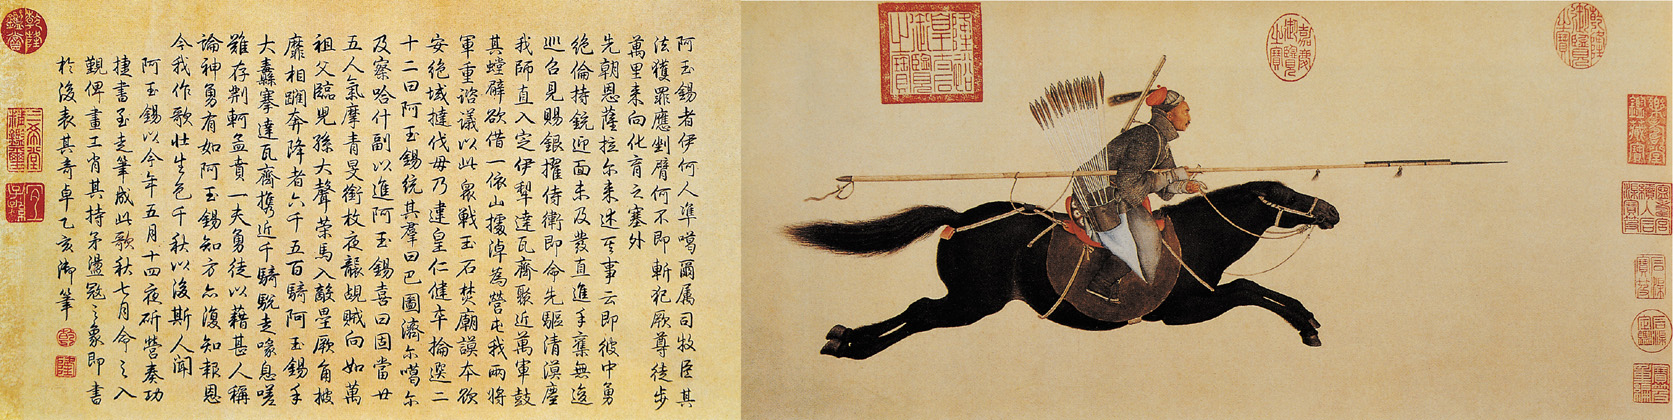 乾隆御覽之寶
嘉慶御覽之寶
阿玉錫者伊何人準噶爾属司牧臣其
法獲罪應剉臂何不即斬犯厥尊徒步
萬里来向化育之塞外
先朝恩薩拉尔来述其事云即彼中勇
絶倫持銃迎面未及發直進手奪無逡
巡召見賜銀擢侍衛即命先驅清漠塵
我師直入定伊犂達瓦齊聚近萬軍鼓
其螳臂欲借一依山據淖為營屯我兩將
軍重諮議以此衆戰玉石焚廟謨本欲
安絶域撻伐毋乃違皇仁健卒掄選二
十二曰阿玉錫統其羣曰巴圖濟尔噶尔
及察哈什副以進阿玉錫喜曰固當廿
五人氣摩青旻銜枚夜襲覘賊向如萬
祖父臨兒孫大聲策馬入敵壘厥角披
靡相躪奔降者六千五百騎阿玉錫手
大纛搴達瓦齊携近千騎駾走喙息嗟
難存荆軻孟賁一夫勇徒以藉甚人稱
論神勇有如阿玉錫知方亦復知報恩
今我作歌壮生色千秋以後斯人聞
阿玉錫以今年五月十四夜斫營奏功
捷書至走筆成此歌秋七月命之入
覲俾畫工肖其持矛盪寇之象即書
於後表其奇卓乙亥御筆
乾
隆
乾隆鑑賞
三希堂精鑑璽
宜子孫